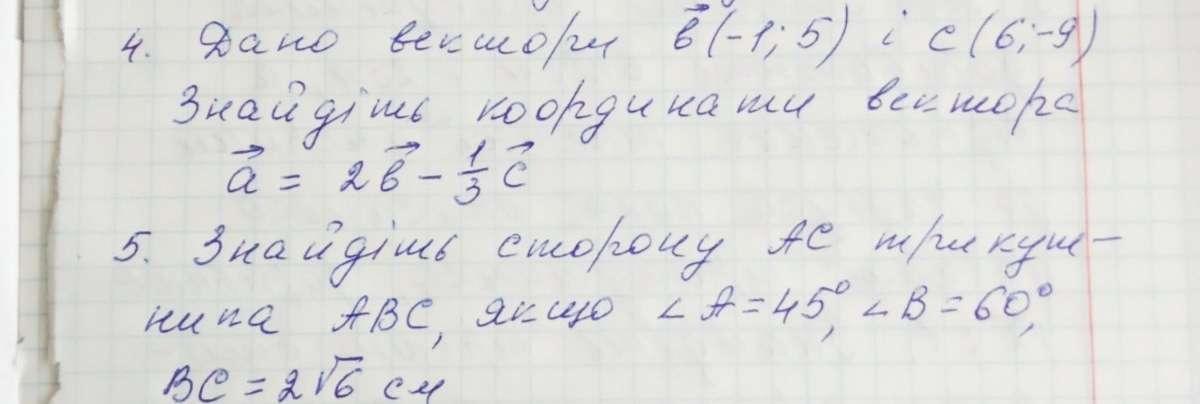 4. Дано вектори в⃗(-1; 5) і с(6; -9)
Знайдіть координати вектора
a⃗ = 2в⃗ - 1/3 c⃗
5. Знайдіть сторону АС трикут-
ника АВС, якщо ∠А=45°, ∠В=60°,
ВС = 2√6 см